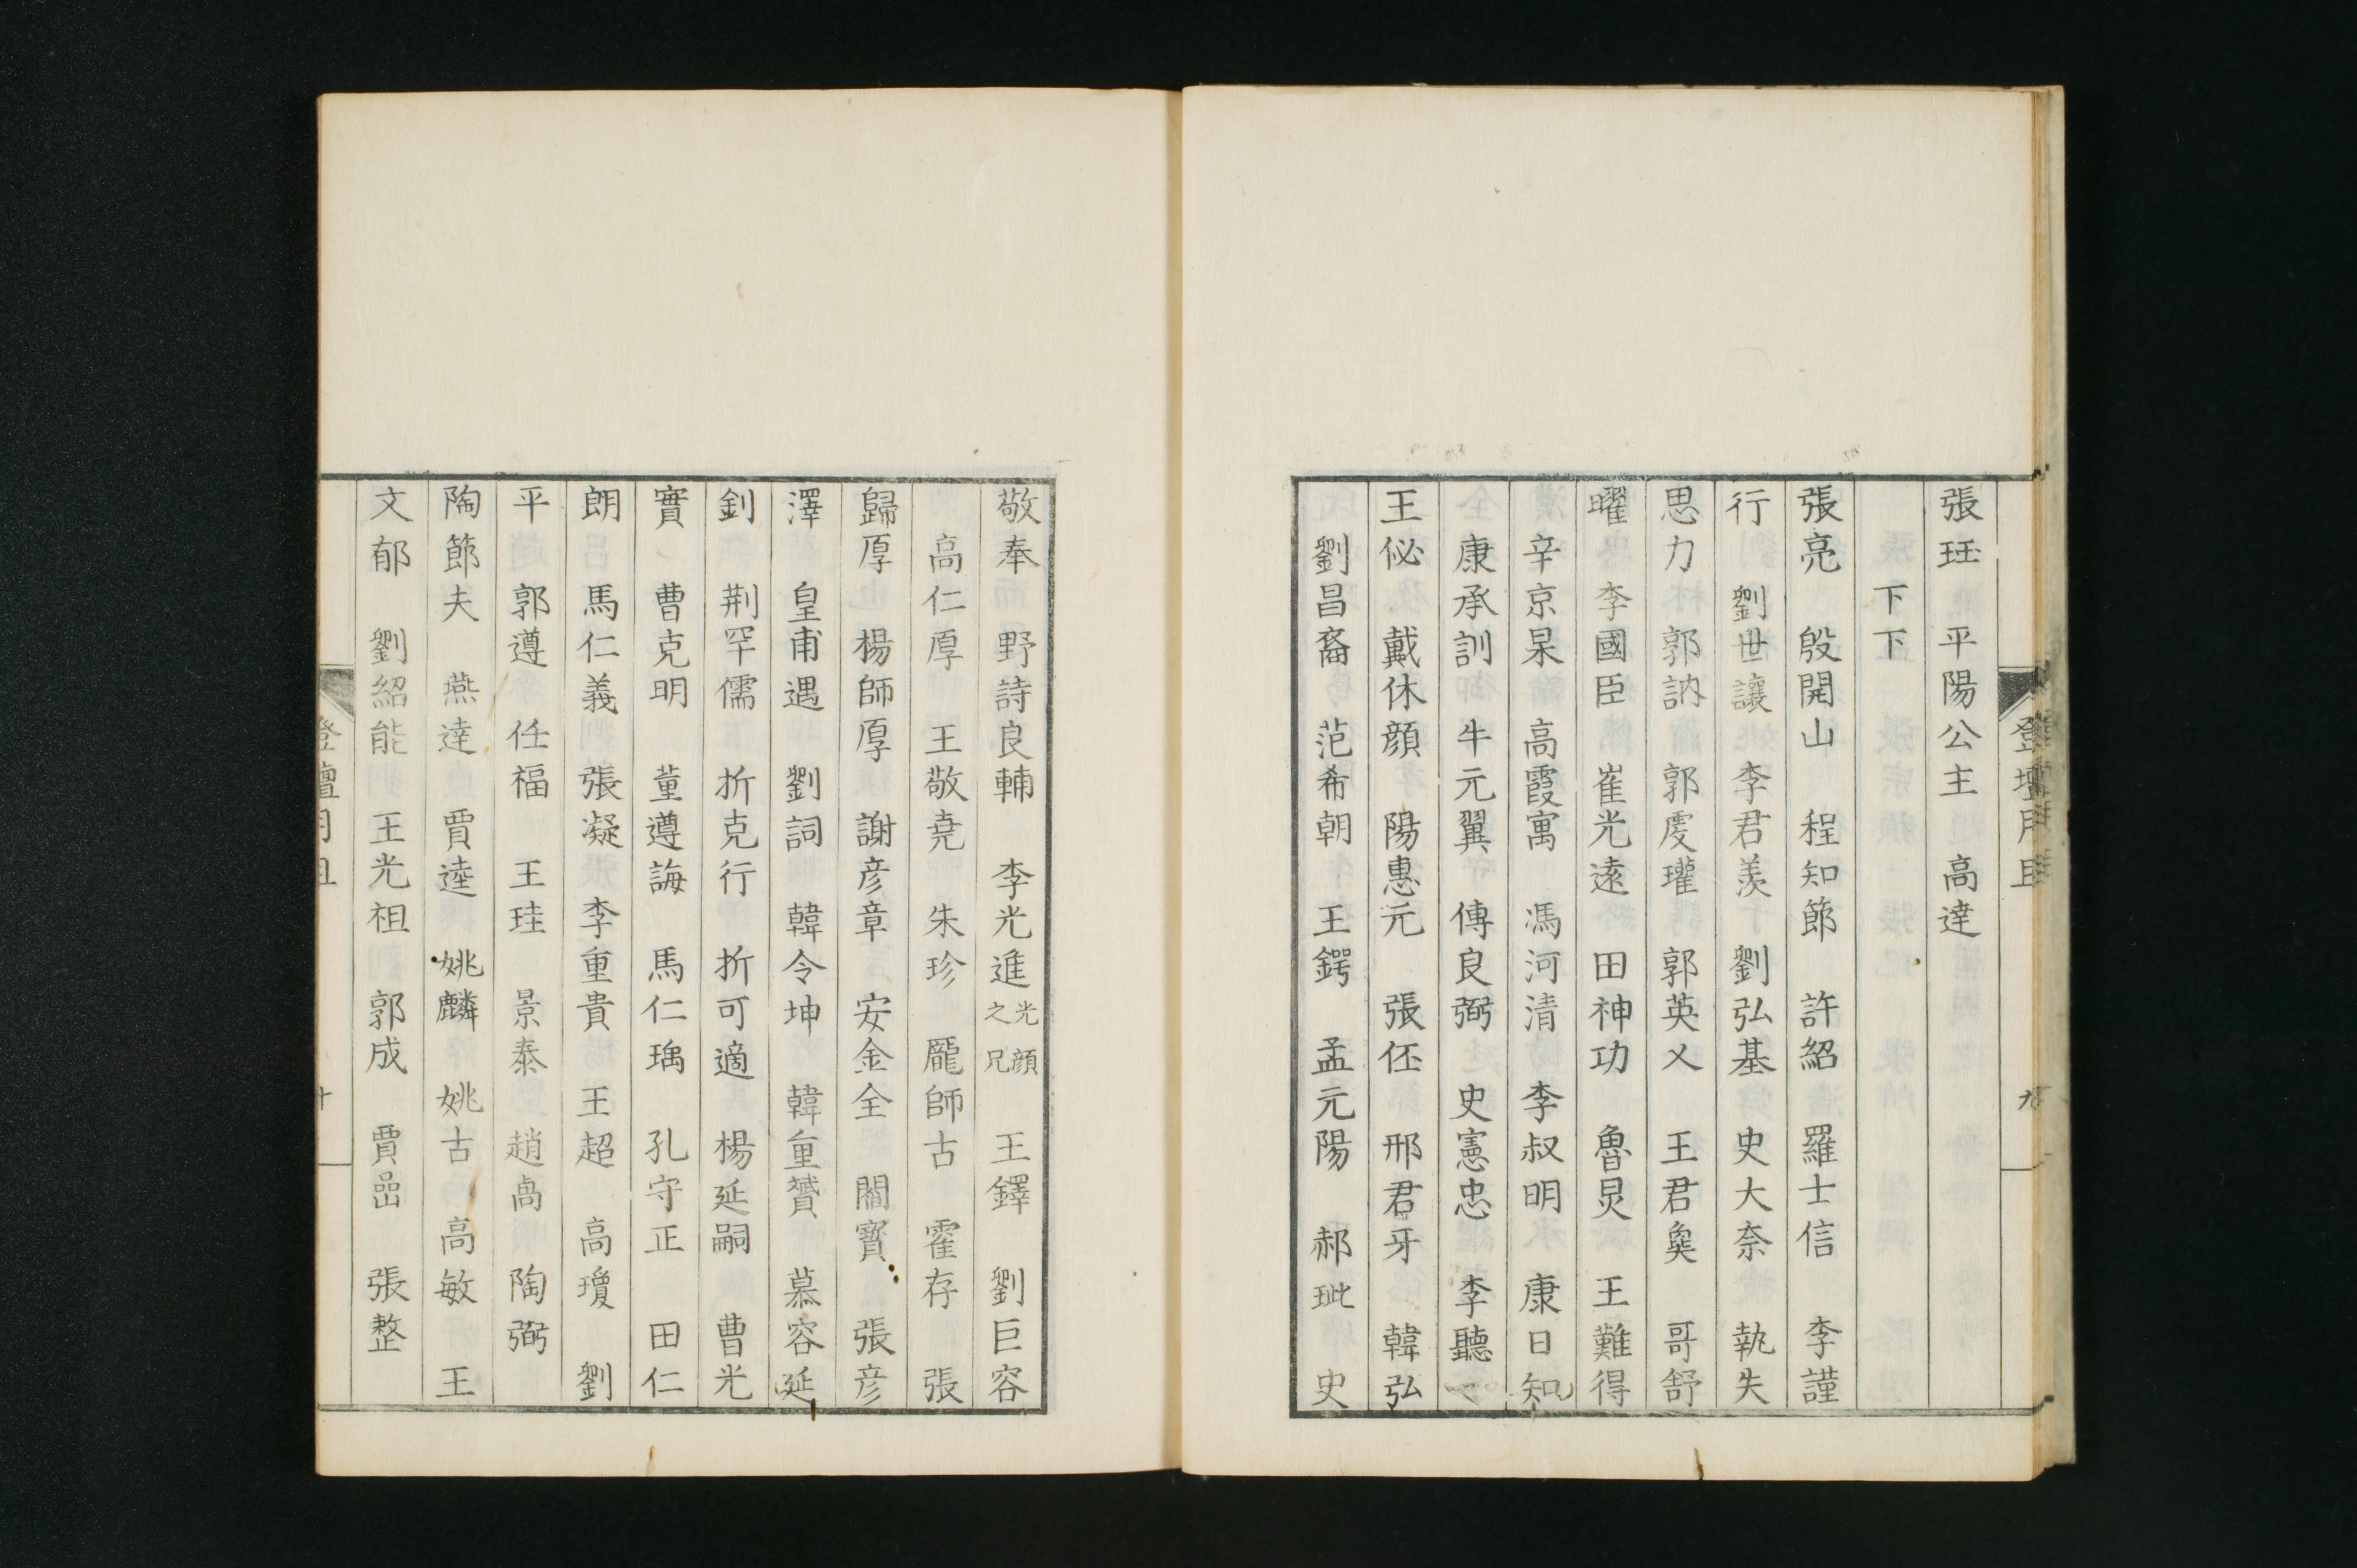 張玨　平陽公主　高達
下下
張亮　殷開山　程知節　許紹　羅士信　李謹
行　劉世讓　李君羨　劉弘基　史大奈　執失
思力　郭訥　郭虔瓘　郭英乂　王君㚟　哥舒
曜　李國臣　崔光遠　田神功　魯炅　王難得
辛京杲　高霞寓　馮河清　李叔明　康日知
康承訓　牛元翼　傅良弼　史憲忠　李聽
王佖　戴休顔　陽惠元　張伾　邢君牙　韓弘
劉昌裔　范希朝　王鍔　孟元陽　郝玼　史
敬奉　野詩良輔　李光進光顔之兄　王鐸　劉巨容
高仁厚　王敬堯　朱珍　龎師古　霍存　張
歸厚　楊師厚　謝彦章　安金全　閻寳　張彦
澤　皇甫遇　劉詞　韓令坤　韓重贇　慕容延
釗　荆罕儒　折克行　折可適　楊延嗣　曹光
實　曹克明　董遵誨　馬仁瑀　孔守正　田仁
朗　馬仁義　張凝　李重貴　王超　高瓊　劉
平　郭遵　任福　王珪　景泰　趙卨　陶弼
陶節夫　燕達　賈逵　姚麟　姚古　高敏　王
文郁　劉紹能　王光祖　郭成　賈嵓　張整